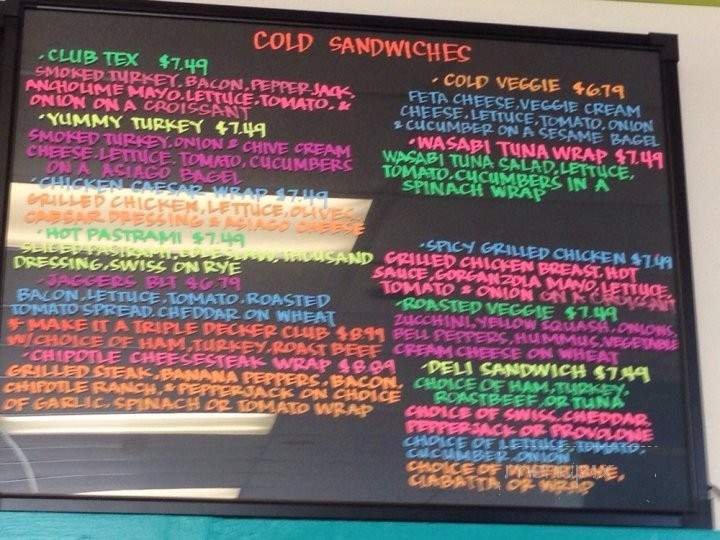 COLD SANDWICHES
· CLUB TEX $7.49
SMOKED TURKEY, BACON, PEPPER JACK,
ANCHOLIME MAYO, LETTUCE, TOMATO, &
ONION ON A CROISSANT
· YUMMY TURKEY $7.49
SMOKED TURKEY, ONION & CHIVE CREAM
CHEESE, LETTUCE, TOMATO, CUCUMBERS
ON A ASIAGO BAGEL
· CHICKEN CAESAR WRAP $7.49
GRILLED CHICKEN, LETTUCE, OLIVES,
CAESAR DRESSING & ASIAGO CHEESE
· HOT PASTRAMI $7.49
SLICED PASTRAMI, COLESLAW, THOUSAND
DRESSING, SWISS ON RYE
· JAGGERS BLT $6.79
BACON, LETTUCE, TOMATO, ROASTED
TOMATO SPREAD, CHEDDAR ON WHEAT
* MAKE IT A TRIPLE DECKER CLUB $8.99
W/CHOICE OF HAM, TURKEY, ROAST BEEF
· CHIPOTLE CHEESESTEAK WRAP $8.89
GRILLED STEAK, BANANA PEPPERS, BACON,
CHIPOTLE RANCH, & PEPPERJACK ON CHOICE
OF GARLIC, SPINACH OR TOMATO WRAP
· COLD VEGGIE $6.79
FETA CHEESE, VEGGIE CREAM
CHEESE, LETTUCE, TOMATO, ONION
& CUCUMBER ON A SESAME BAGEL
· WASABI TUNA WRAP $7.49
WASABI TUNA SALAD, LETTUCE,
TOMATO, CUCUMBERS IN A
SPINACH WRAP
· SPICY GRILLED CHICKEN $7.49
GRILLED CHICKEN BREAST, HOT
SAUCE, GORGANZOLA MAYO, LETTUCE,
TOMATO & ONION ON A CROISSANT
· ROASTED VEGGIE $7.49
ZUCCHINI, YELLOW SQUASH, ONIONS,
BELL PEPPERS, HUMMUS, VEGETABLE
CREAM CHEESE ON WHEAT
· DELI SANDWICH $7.49
CHOICE OF HAM, TURKEY,
ROASTBEEF, OR TUNA
CHOICE OF SWISS, CHEDDAR,
PEPPERJACK OR PROVOLONE
CHOICE OF LETTUCE, TOMATO,
CUCUMBER, ONION
CHOICE OF WHEAT, RYE,
CIABATTA OR WRAP